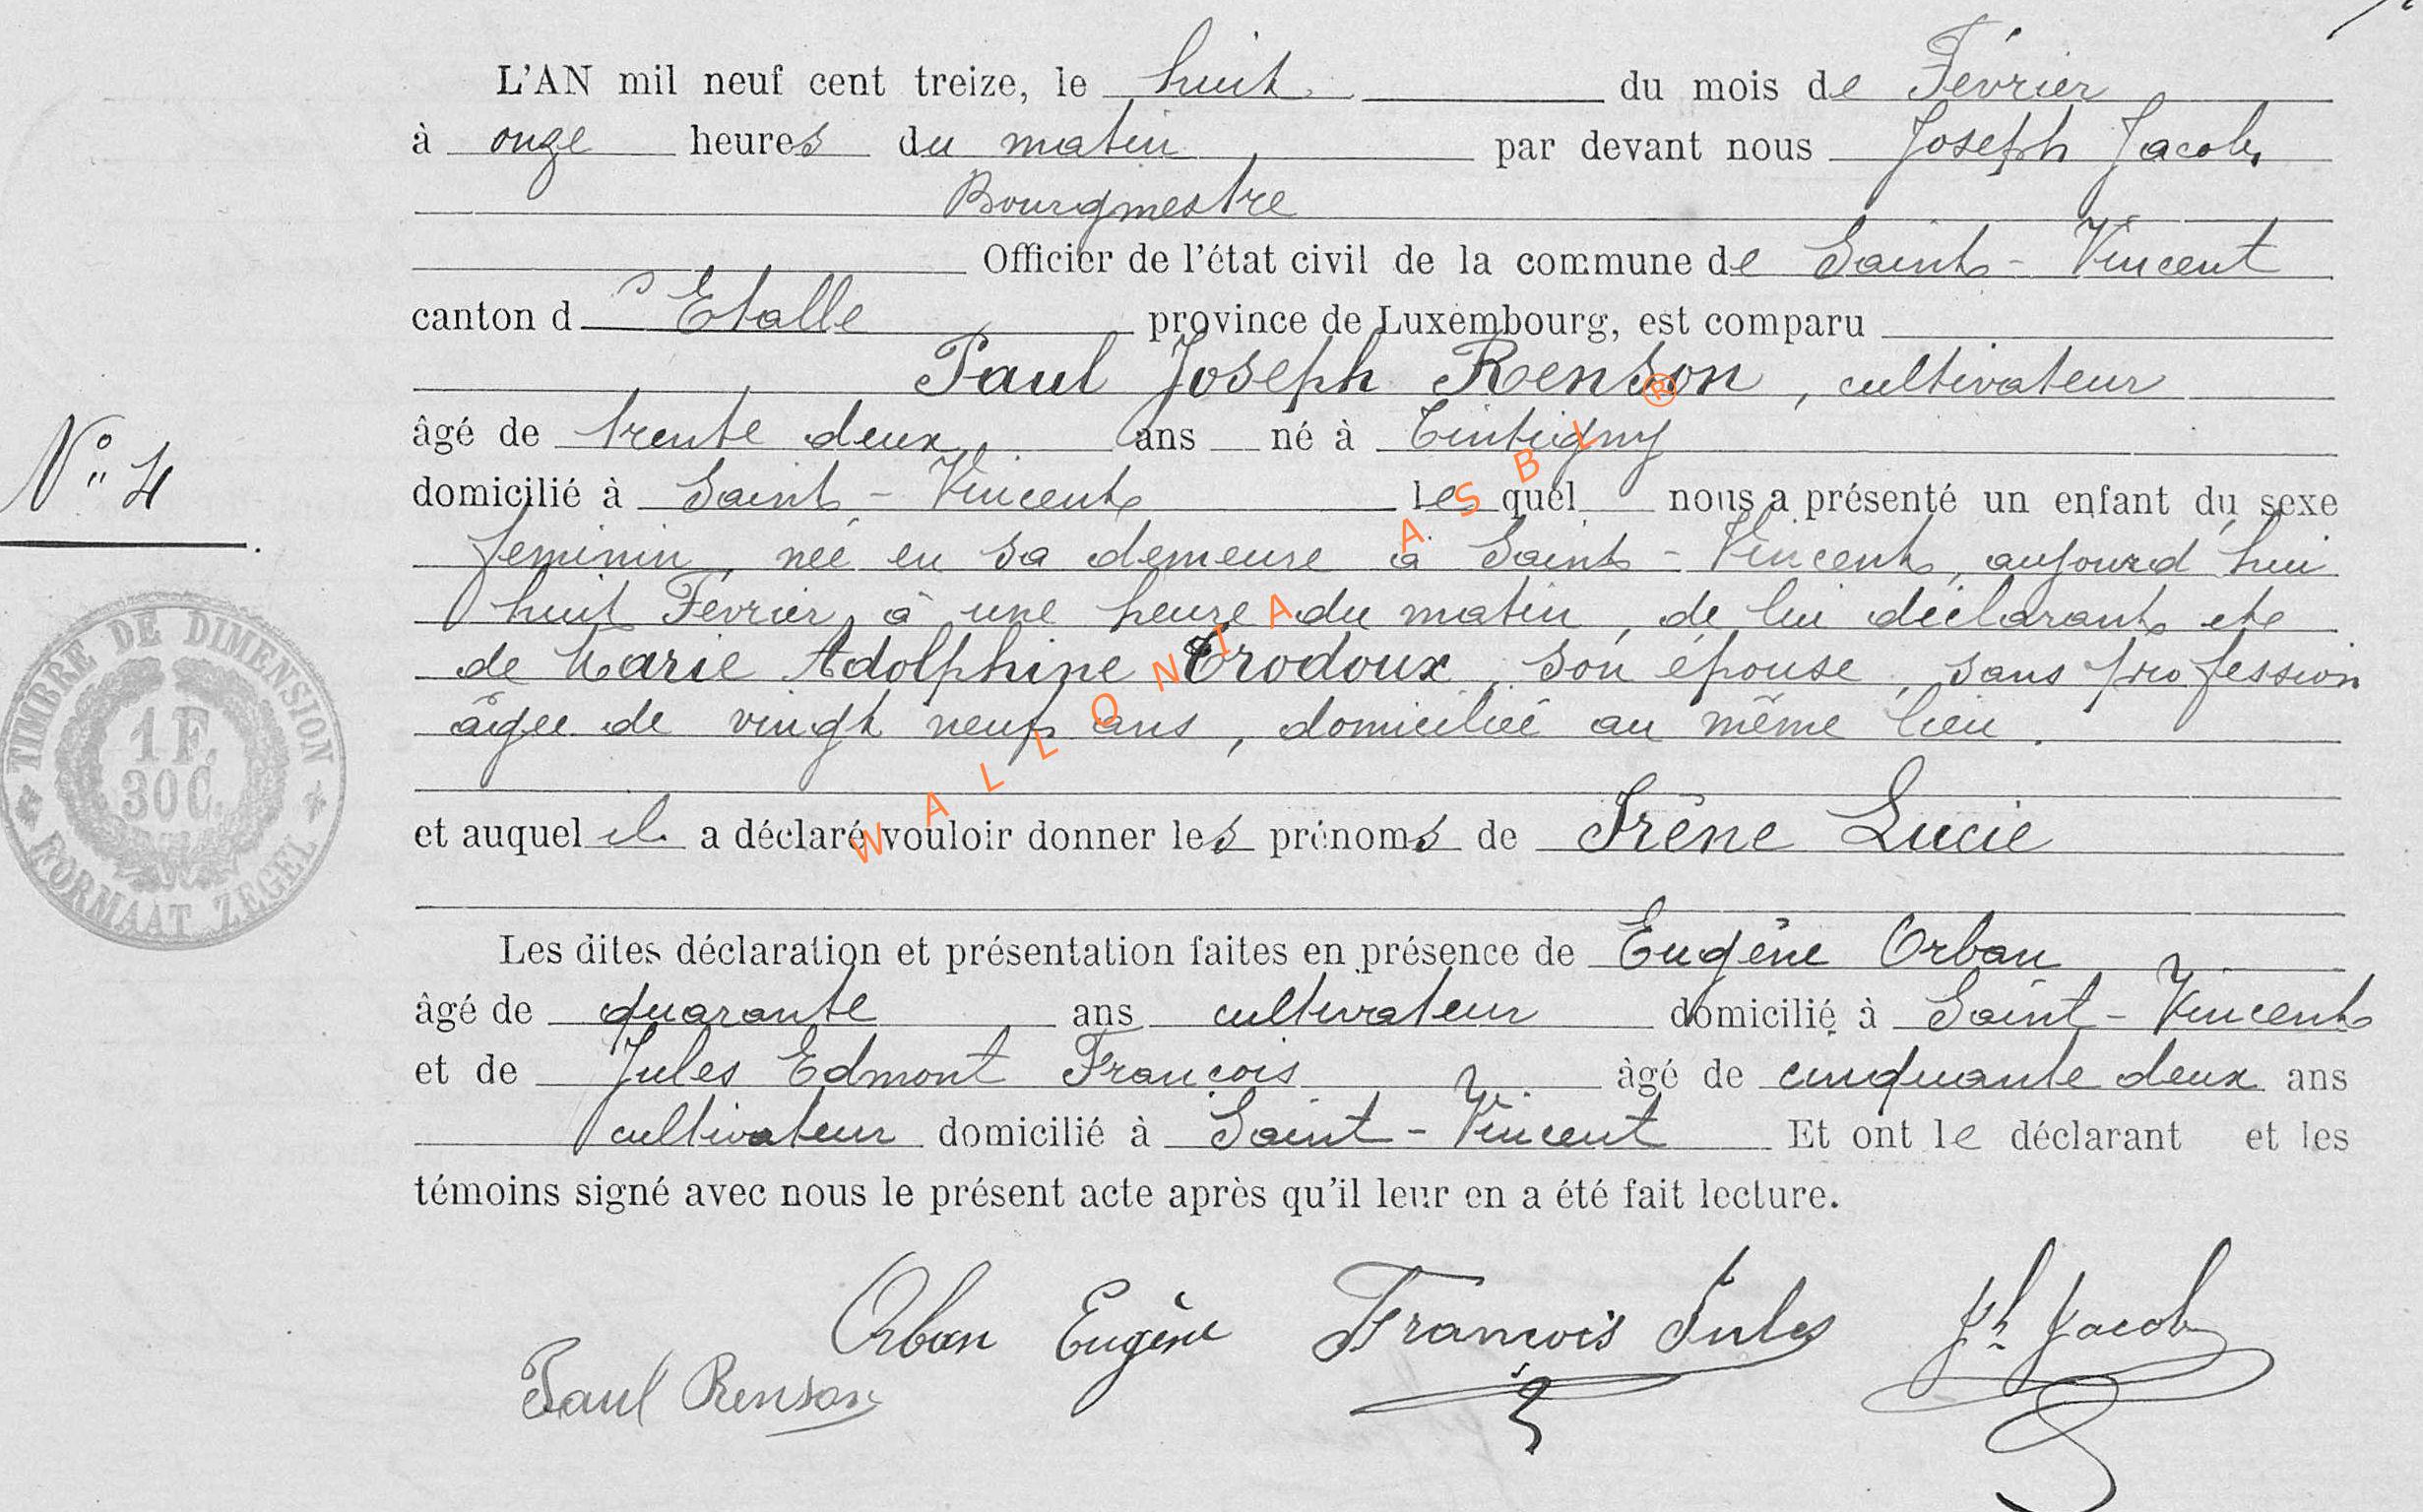 L'AN mil neuf cent treize, le huit du mois de Février
à onze heures du matin par devant nous Joseph Jacob,
Bourgmestre
Officier de l'état civil de la commune de Saint-Vincent
canton d'Etalle province de Luxembourg, est comparu
Paul Joseph Renson, cultivateur
âgé de trente deux ans né à Tintigny
domicilié à Saint-Vincent lequel nous a présenté un enfant du sexe
N° 4
féminin, née en sa demeure à Saint-Vincent, aujourd'hui
huit Février, à une heure du matin, de lui déclarant et
de Marie Adolphine Trodoux, son épouse, sans profession
âgée de vingt neuf ans, domiciliée au même lieu.
TIMBRE DE DIMENSION
1 F.
30 C.
FORMAAT ZEGEL
et auquel il a déclaré vouloir donner les prénoms de Irêne Lucie
Les dites déclaration et présentation faites en présence de Eugêne Orban
âgé de quarante ans cultivateur domicilié à Saint-Vincent
et de Jules Edmont François âgé de cinquante deux ans
cultivateur domicilié à Saint-Vincent Et ont le déclarant et les
témoins signé avec nous le présent acte après qu'il leur en a été fait lecture.
Orban Eugène François Jules Jh Jacob
Paul Renson
WALLONIA ASBL ®